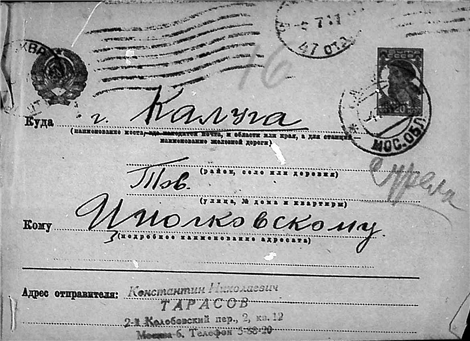 47 отд
16
МОС.ОБЛ
Куда г. Калуга
(наименование места, где находится почта, и области или края, а для станций
наименование железной дороги)
(район, село или деревня)
Тов.
(улица, № дома и квартиры)
Кому Циолковскому.
(подробное наименование адресата)
Адрес отправителя: Константин Николаевич
ТАРАСОВ
2-й Колобовский пер., 2, кв. 12
Москва 6. Телефон 3-88-20